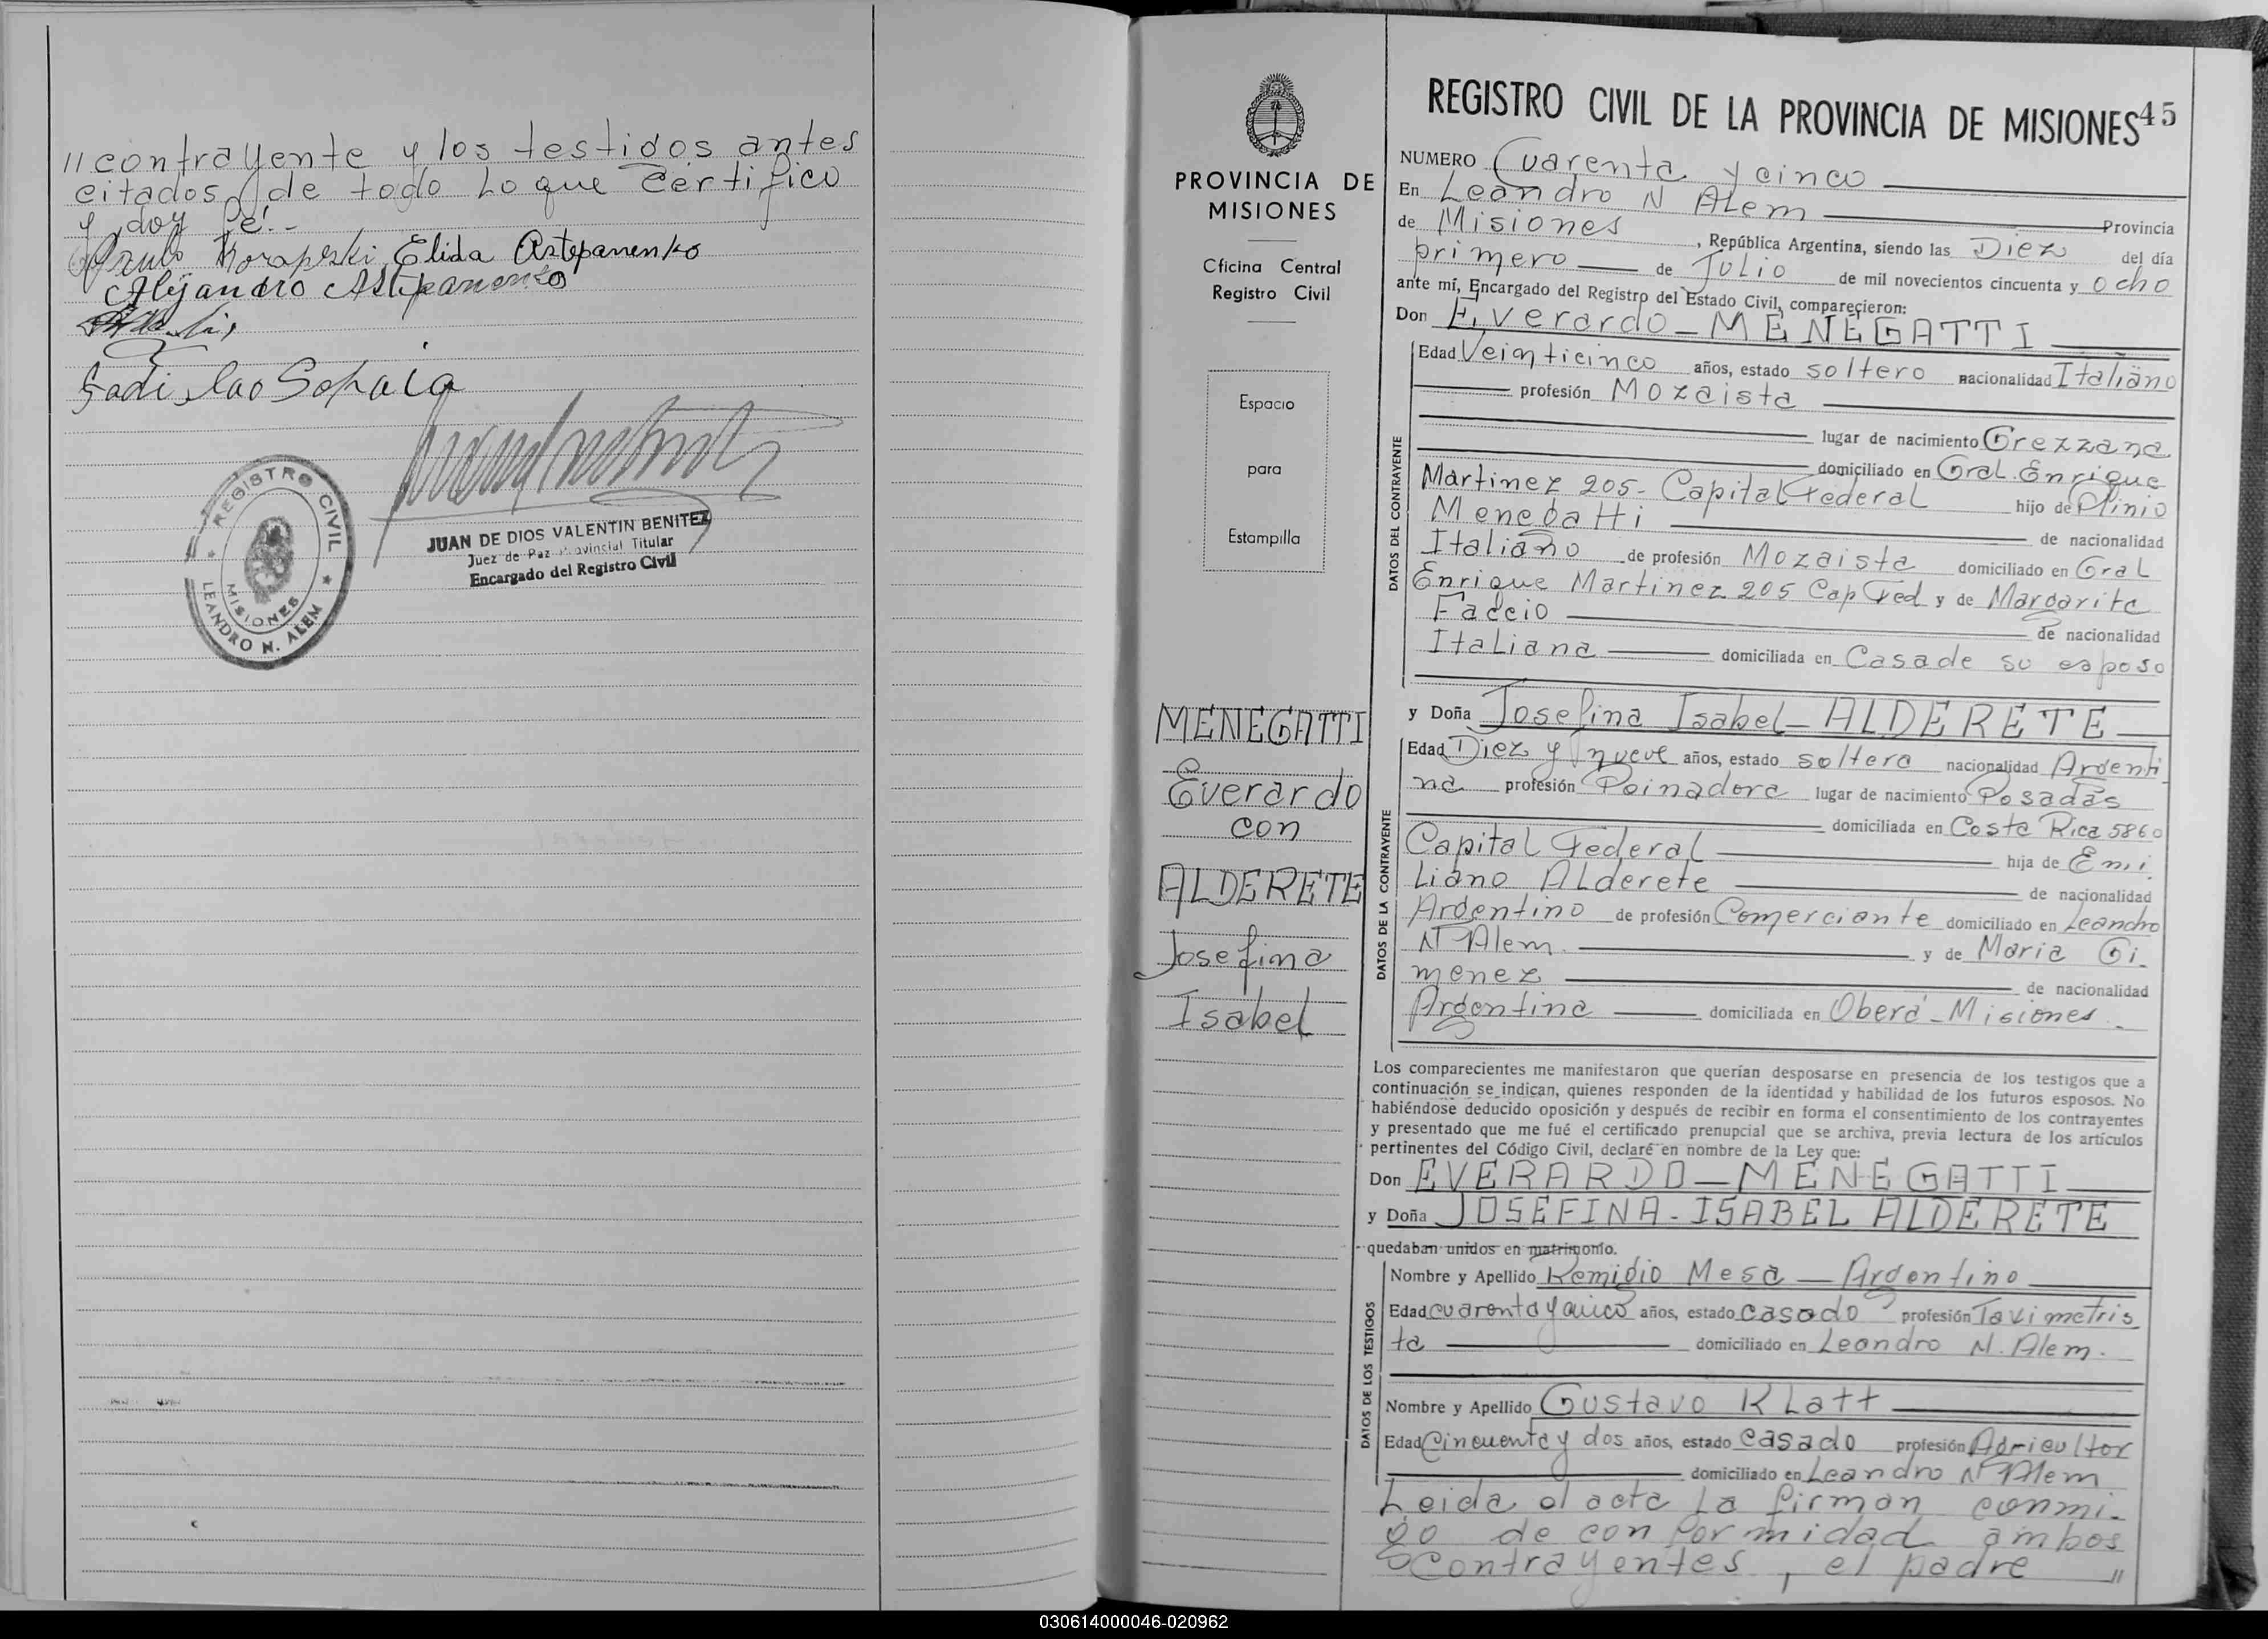 // contrayente y los testigos antes
citados, de todo lo que certifico
y doy fé.-
Elida Astapanenko
Alejandro Astapanenko
REGISTRO CIVIL
MISIONES
LEANDRO N. ALEM
JUAN DE DIOS VALENTIN BENITEZ
Juez de Paz Provincial Titular
Encargado del Registro Civil
PROVINCIA DE
MISIONES
Oficina Central
Registro Civil
Espacio
para
Estampilla
MENEGATTI
Everardo
con
ALDERETE
Josefina
Isabel
REGISTRO CIVIL DE LA PROVINCIA DE MISIONES 45
NUMERO Cuarenta y cinco
En Leandro N Alem Provincia
de Misiones, República Argentina, siendo las Diez del día
primero de Julio de mil novecientos cincuenta y ocho
ante mí, Encargado del Registro del Estado Civil, comparecieron:
Don Everardo - MENEGATTI
DATOS DEL CONTRAYENTE
Edad Veinticinco años, estado soltero nacionalidad Italiano
profesión Mozaista
lugar de nacimiento Grezzana
domiciliado en Gral. Enrique
Martinez 205- Capital Federal hijo de Plinio
Menegatti de nacionalidad
Italiano de profesión Mozaista domiciliado en Gral
Enrique Martinez 205 Cap Fed y de Margarita
Faccio de nacionalidad
Italiana domiciliada en Casa de su esposo
y Doña Josefina Isabel - ALDERETE
DATOS DE LA CONTRAYENTE
Edad Diez y nueve años, estado soltera nacionalidad Argenti
na profesión Peinadora lugar de nacimiento Posadas
domiciliada en Costa Rica 5860
Capital Federal hija de Emi
liano Alderete de nacionalidad
Argentino de profesión Comerciante domiciliado en Leandro
N Alem. y de Maria Gi-
menez de nacionalidad
Argentina domiciliada en Oberá - Misiones.
Los comparecientes me manifestaron que querían desposarse en presencia de los testigos que a
continuación se indican, quienes responden de la identidad y habilidad de los futuros esposos. No
habiéndose deducido oposición y después de recibir en forma el consentimiento de los contrayentes
y presentado que me fué el certificado prenupcial que se archiva, previa lectura de los artículos
pertinentes del Código Civil, declaré en nombre de la Ley que:
Don EVERARDO - MENEGATTI
y Doña JOSEFINA - ISABEL ALDERETE
quedaban unidos en matrimonio.
DATOS DE LOS TESTIGOS
Nombre y Apellido Remigio Mesa - Argentino
Edad cuarenta y cinco años, estado casado profesión Taximetris
ta domiciliado en Leandro N. Alem.
Nombre y Apellido Gustavo Klatt
Edad Cincuenta y dos años, estado casado profesión Agricultor
domiciliado en Leandro N Alem
Leida el acta la firman conmi-
go de conformidad ambos
contrayentes, el padre //
030614000046-020962